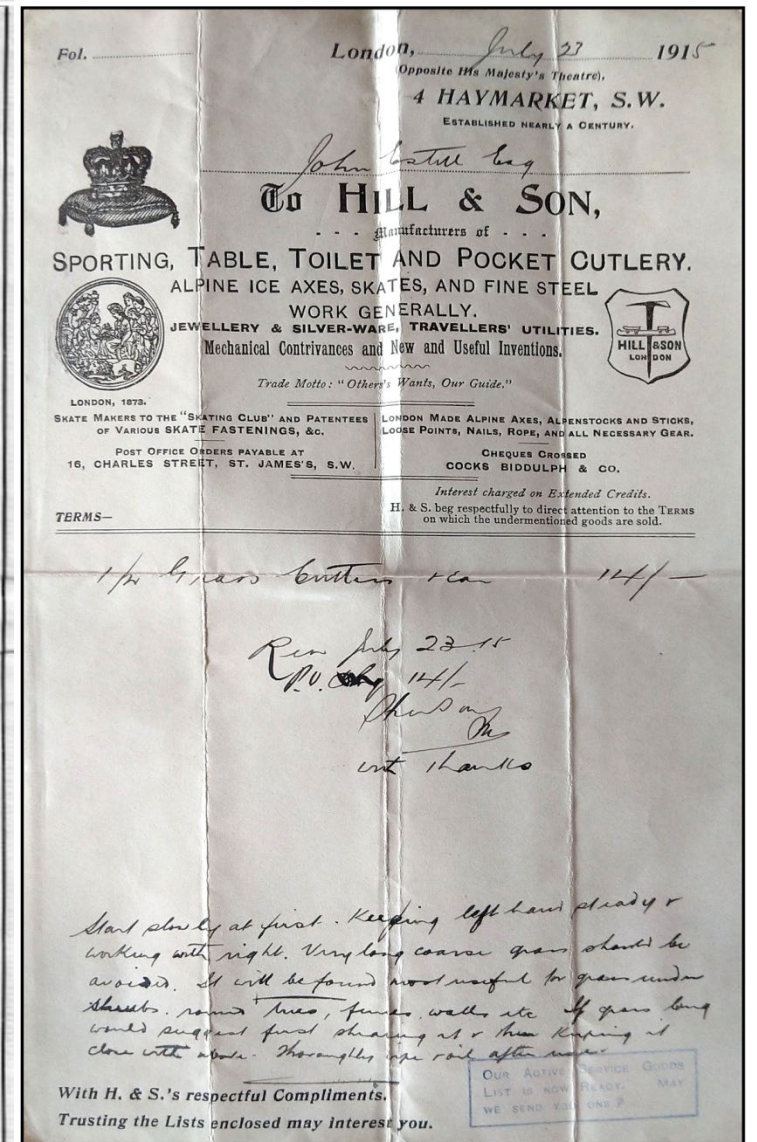 Fol.
London, July 23 1915
(Opposite His Majesty's Theatre),
4 HAYMARKET, S.W.
ESTABLISHED NEARLY A CENTURY.
John Esq
To HILL & SON,
- - - Manufacturers of - - -
SPORTING, TABLE, TOILET AND POCKET CUTLERY.
ALPINE ICE AXES, SKATES, AND FINE STEEL
WORK GENERALLY.
JEWELLERY & SILVER-WARE, TRAVELLERS' UTILITIES.
Mechanical Contrivances and New and Useful Inventions.
HILL & SON
LONDON
Trade Motto: "Others's Wants, Our Guide."
LONDON, 1873.
SKATE MAKERS TO THE "SKATING CLUB" AND PATENTEES
OF VARIOUS SKATE FASTENINGS, &c.
POST OFFICE ORDERS PAYABLE AT
16, CHARLES STREET, ST. JAMES'S, S.W.
LONDON MADE ALPINE AXES, ALPENSTOCKS AND STICKS,
LOOSE POINTS, NAILS, ROPE, AND ALL NECESSARY GEAR.
CHEQUES CROSSED
COCKS BIDDULPH & CO.
Interest charged on Extended Credits.
H. & S. beg respectfully to direct attention to the TERMS
on which the undermentioned goods are sold.
TERMS—
Grass Cutters 14/-
July 23 15
P.O. 14/-
with thanks
Start slowly at first. Keeping left hand steady &
working with right. Very long coarse grass should be
avoided. It will be found most useful for grass under
shrubs. round trees, fences, walls etc If grass long
would suggest first shearing it & then keeping it
close with above. Thoroughly wipe after use.
With H. & S.'s respectful Compliments.
Trusting the Lists enclosed may interest you.
OUR ACTIVE SERVICE GOODS
LIST IS NOW READY. MAY
WE SEND YOU ONE?